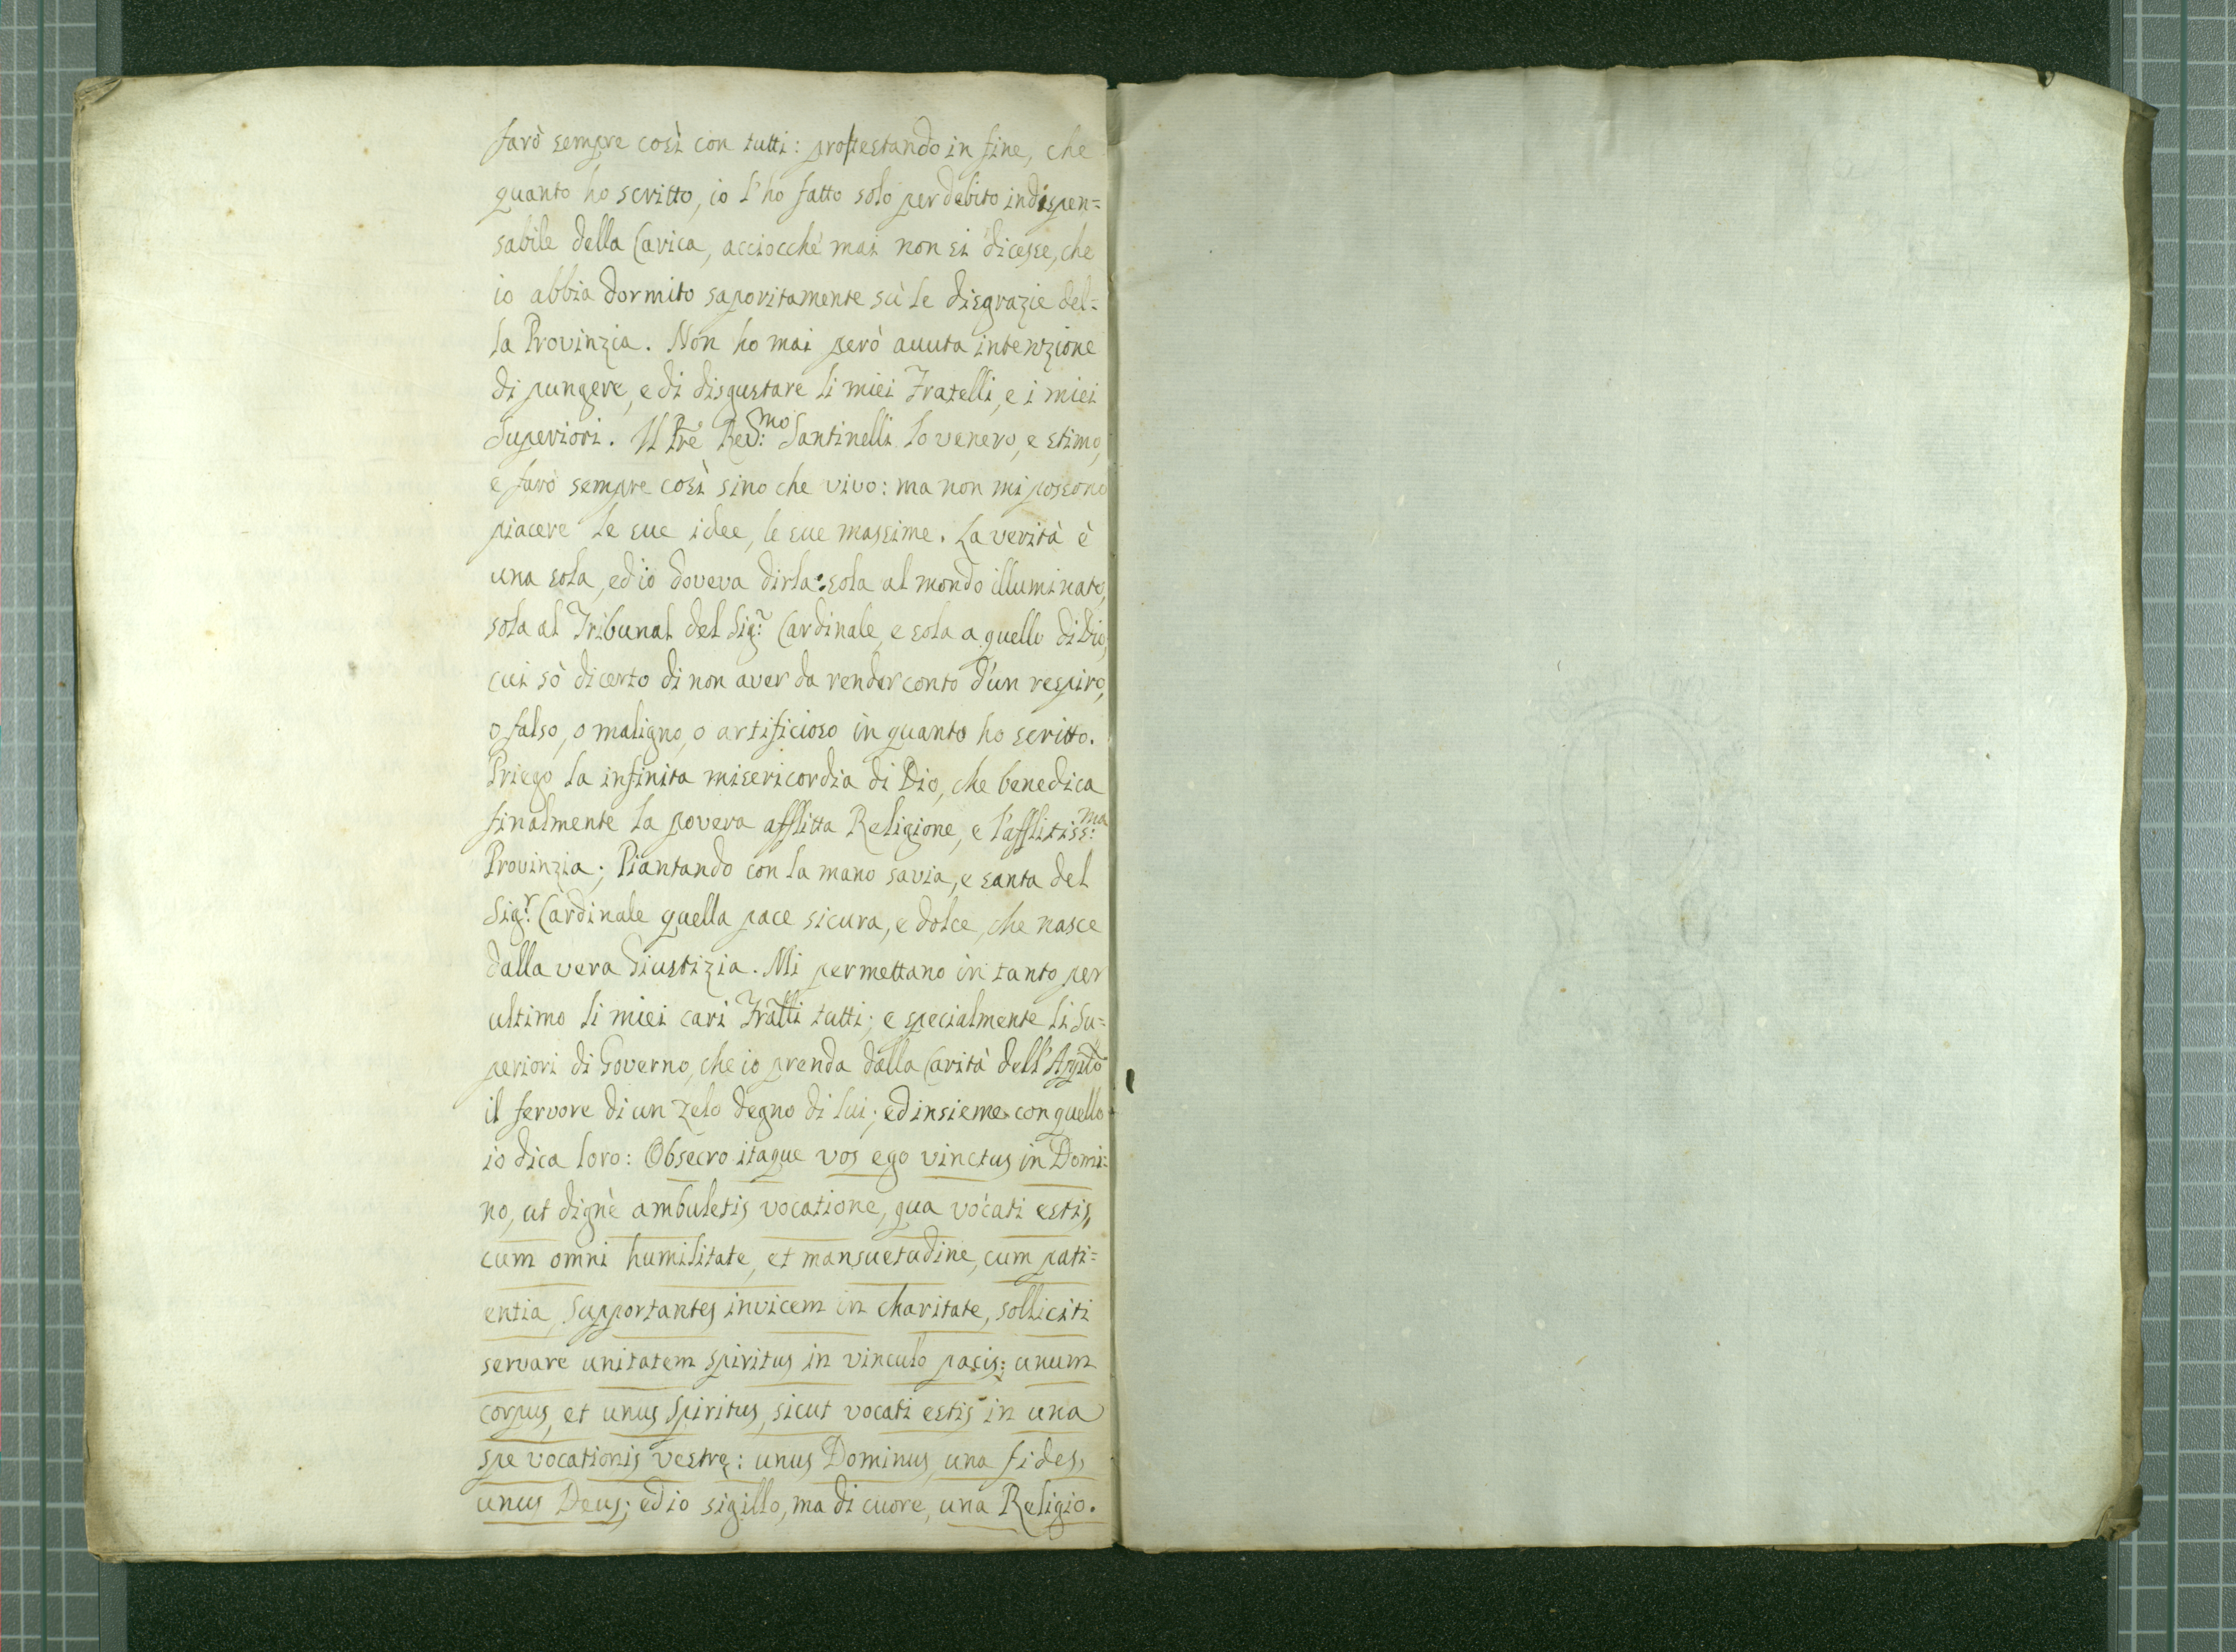 farò sempre così con tutti: protestando in fine, che
quanto ho scritto, io l'ho fatto solo per debito indispen=
sabile della Carica, acciocché mai non si dicesse, che
io abbia dormito saporitamente sù le disgrazie del=
la Provinzia. Non ho mai però auuta intenzione
di pungere, e di disgustare li miei Fratelli, e i miei
Superiori. Il Pre Revmo: Santinelli lo venero, e stimo,
e farò sempre così sino che vivo: ma non mi possono
piacere le sue idee, le sue massime. La verità è
una sola, ed io doveva dirla: sola al mondo illuminato,
sola al Tribunal del Sigr: Cardinale, e sola a quello di Dio,
cui sò di certo di non aver da render conto d'un respiro,
o falso, o maligno, o artificioso in quanto ho scritto.
Priego la infinita misericordia di Dio, che benedica
finalmente la povera afflitta Religione, e l'afflitissma:
Provinzia; Piantando con la mano savia, e santa del
Sigr: Cardinale quella pace sicura, e dolce, che nasce
dalla vera Giustizia. Mi permettano in tanto per
ultimo li miei cari Fratlli tutti; e specialmente li Su=
periori di Governo, che io prenda dalla Carità dell'Applo
il fervore di un zelo degno di lui; ed insieme con quello
io dica loro: Obsecro itaque vos ego vinctus in Domi=
no, ut dignè ambuletis vocatione, qua vocati estis,
cum omni humilitate, et mansuetudine, cum pati=
entia, Supportantes invicem in charitate, solliciti
servare unitatem Spiritus in vinculo pacis: unum
corpus, et unus Spiritus, sicut vocati estis in una
spe vocationis vestrę: unus Dominus, una fides,
unus Deus; ed io sigillo, ma di cuore, una Religio.